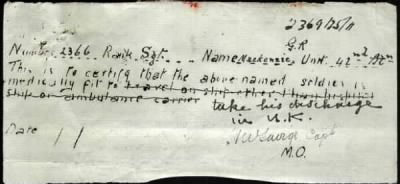 2369/25/11
G.R
Number 2366 Rank Sgt. Name Mackenzie Unit 42nd Btn
This is to certify that the above named soldier is
medically fit to travel on ship other than hospital
ship or ambulance carrier take his discharge
in U.K.
Date / / Capt
M.O.